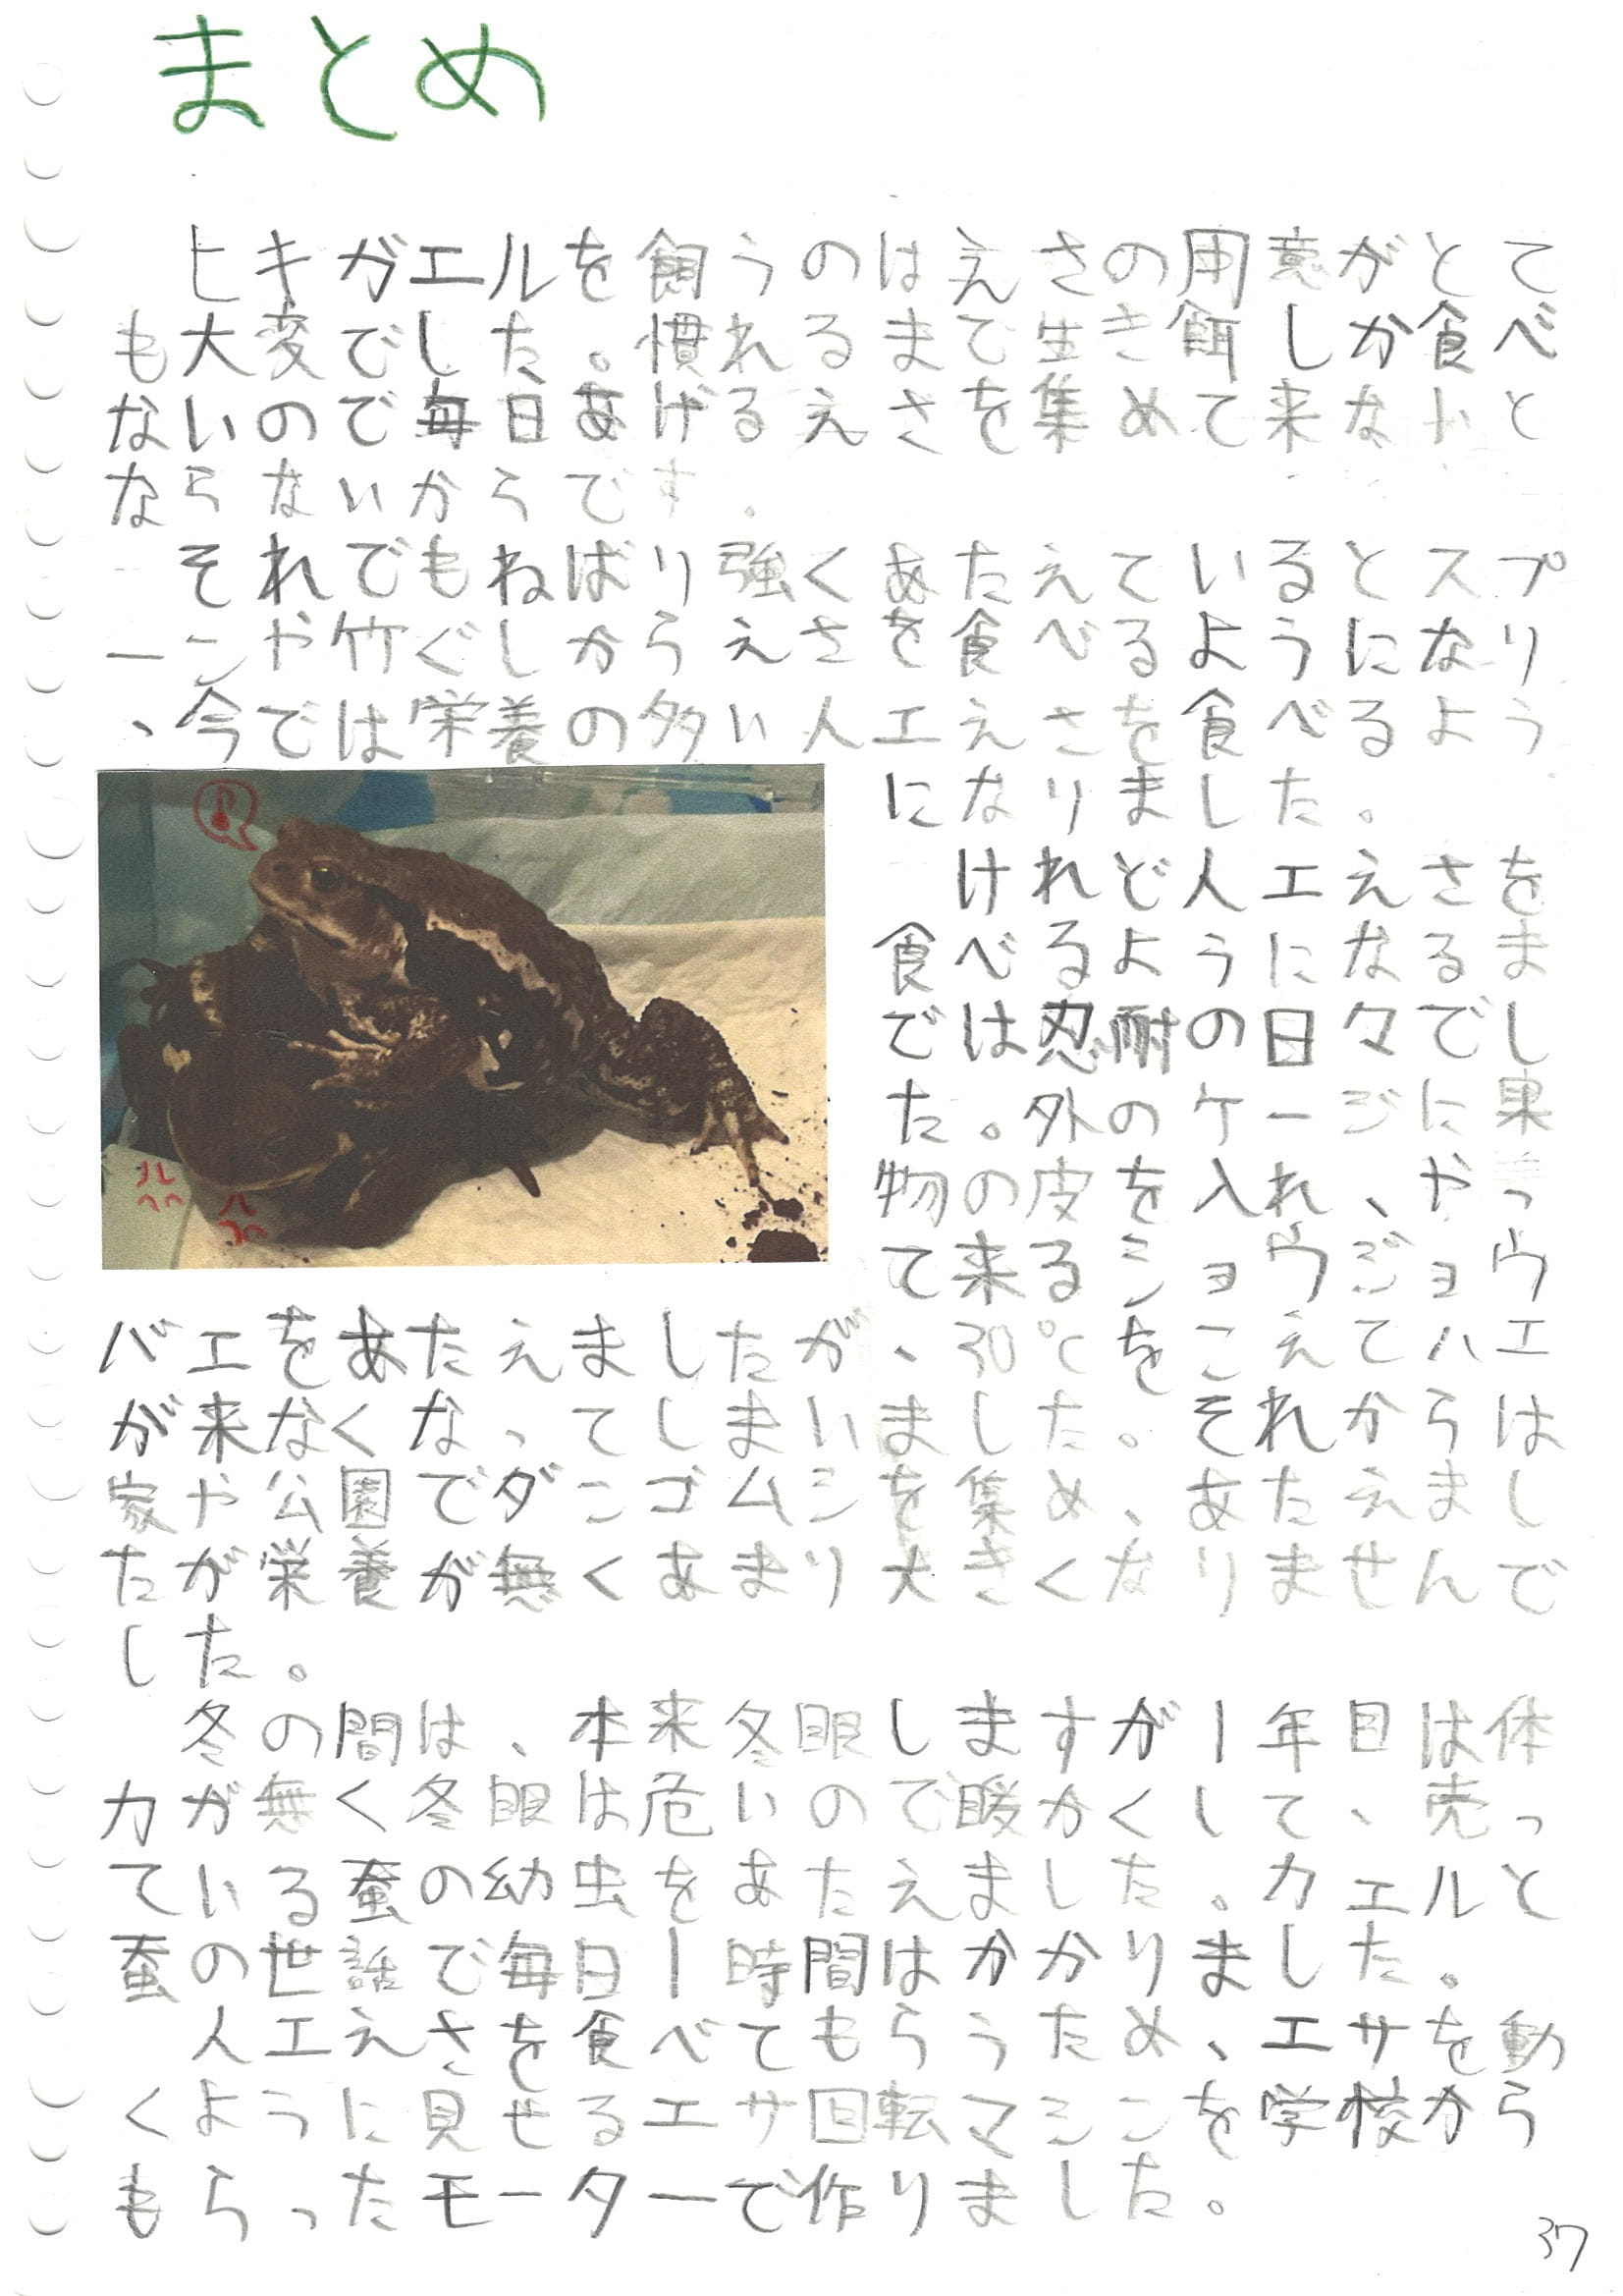 まとめ
ヒキガエルを飼うのはえさの用意がとて
も大変でした。慣れるまで生き餌しか食べ
ないので毎日あげるえさを集めて来ないと
ならないからです。
それでもねばり強くあたえているとスプ
ーンや竹ぐしからえさを食べるようになり
、今では栄養の多い人工えさを食べるよう
になりました。
けれど人工えさを
食べるようになるま
では忍耐の日々でし
た。外のケージに果
物の皮を入れ、やっ
て来るショウジョウ
バエをあたえましたが、30℃をこえてハエ
が来なくなってしまいました。それからは
家や公園でダンゴムシを集め、あたえまし
たが栄養が無くあまり大きくなりませんで
した。
冬の間は、本来冬眠しますが1年目は体
力が無く冬眠は危いので暖かくして、売っ
ている蚕の幼虫をあたえました。カエルと
蚕の世話で毎日1時間はかかりました。
人工えさを食べてもらうため、エサを動
くように見せるエサ回転マシンを学校から
もらったモーターで作りました。
37